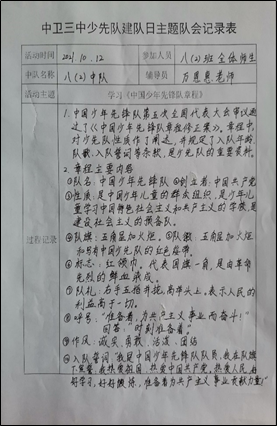 中卫三中少先队建队日主题队会记录表
活动时间 2021.10.12 参加人员 八(2)班全体师生
中队名称 八(2)中队 辅导员 万恩恩老师
活动主题 学习《中国少年先锋队章程》
过程记录
1. 中国少年先锋队第五次全国代表大会审议通
过了《中国少年先锋队章程修正案》。章程中,
对少先队性质作了阐述,并规定了入队年龄、
队歌、入队誓词等条款,是少先队的重要资料。
2. 章程主要内容
①队名:中国少年先锋队 ②创立者:中国共产党
③性质:是中国少年儿童的群众组织,是少年儿
童学习中国特色社会主义和共产主义的学校,是
建设社会主义的预备队。
④队旗:五角星加火炬。⑤队徽 五角星加火炬
和写有中国少先队的红色绶带。
⑥标志:红领巾,代表国旗一角,是由革命
先烈的鲜血染成。
⑦队礼:右手五指并拢,高举头上。表示人民的
利益高于一切。
⑧呼号:"准备着,为共产主义事业而奋斗!"
回答:"时刻准备着!"
⑨作风:诚实、勇敢、活泼、团结
⑩入队誓词"我是中国少年先锋队队员,我在队旗
下宣誓,我热爱祖国,热爱中国共产党,热爱人民,好
好学习,好好锻炼,准备着为共产主义事业贡献力量!"